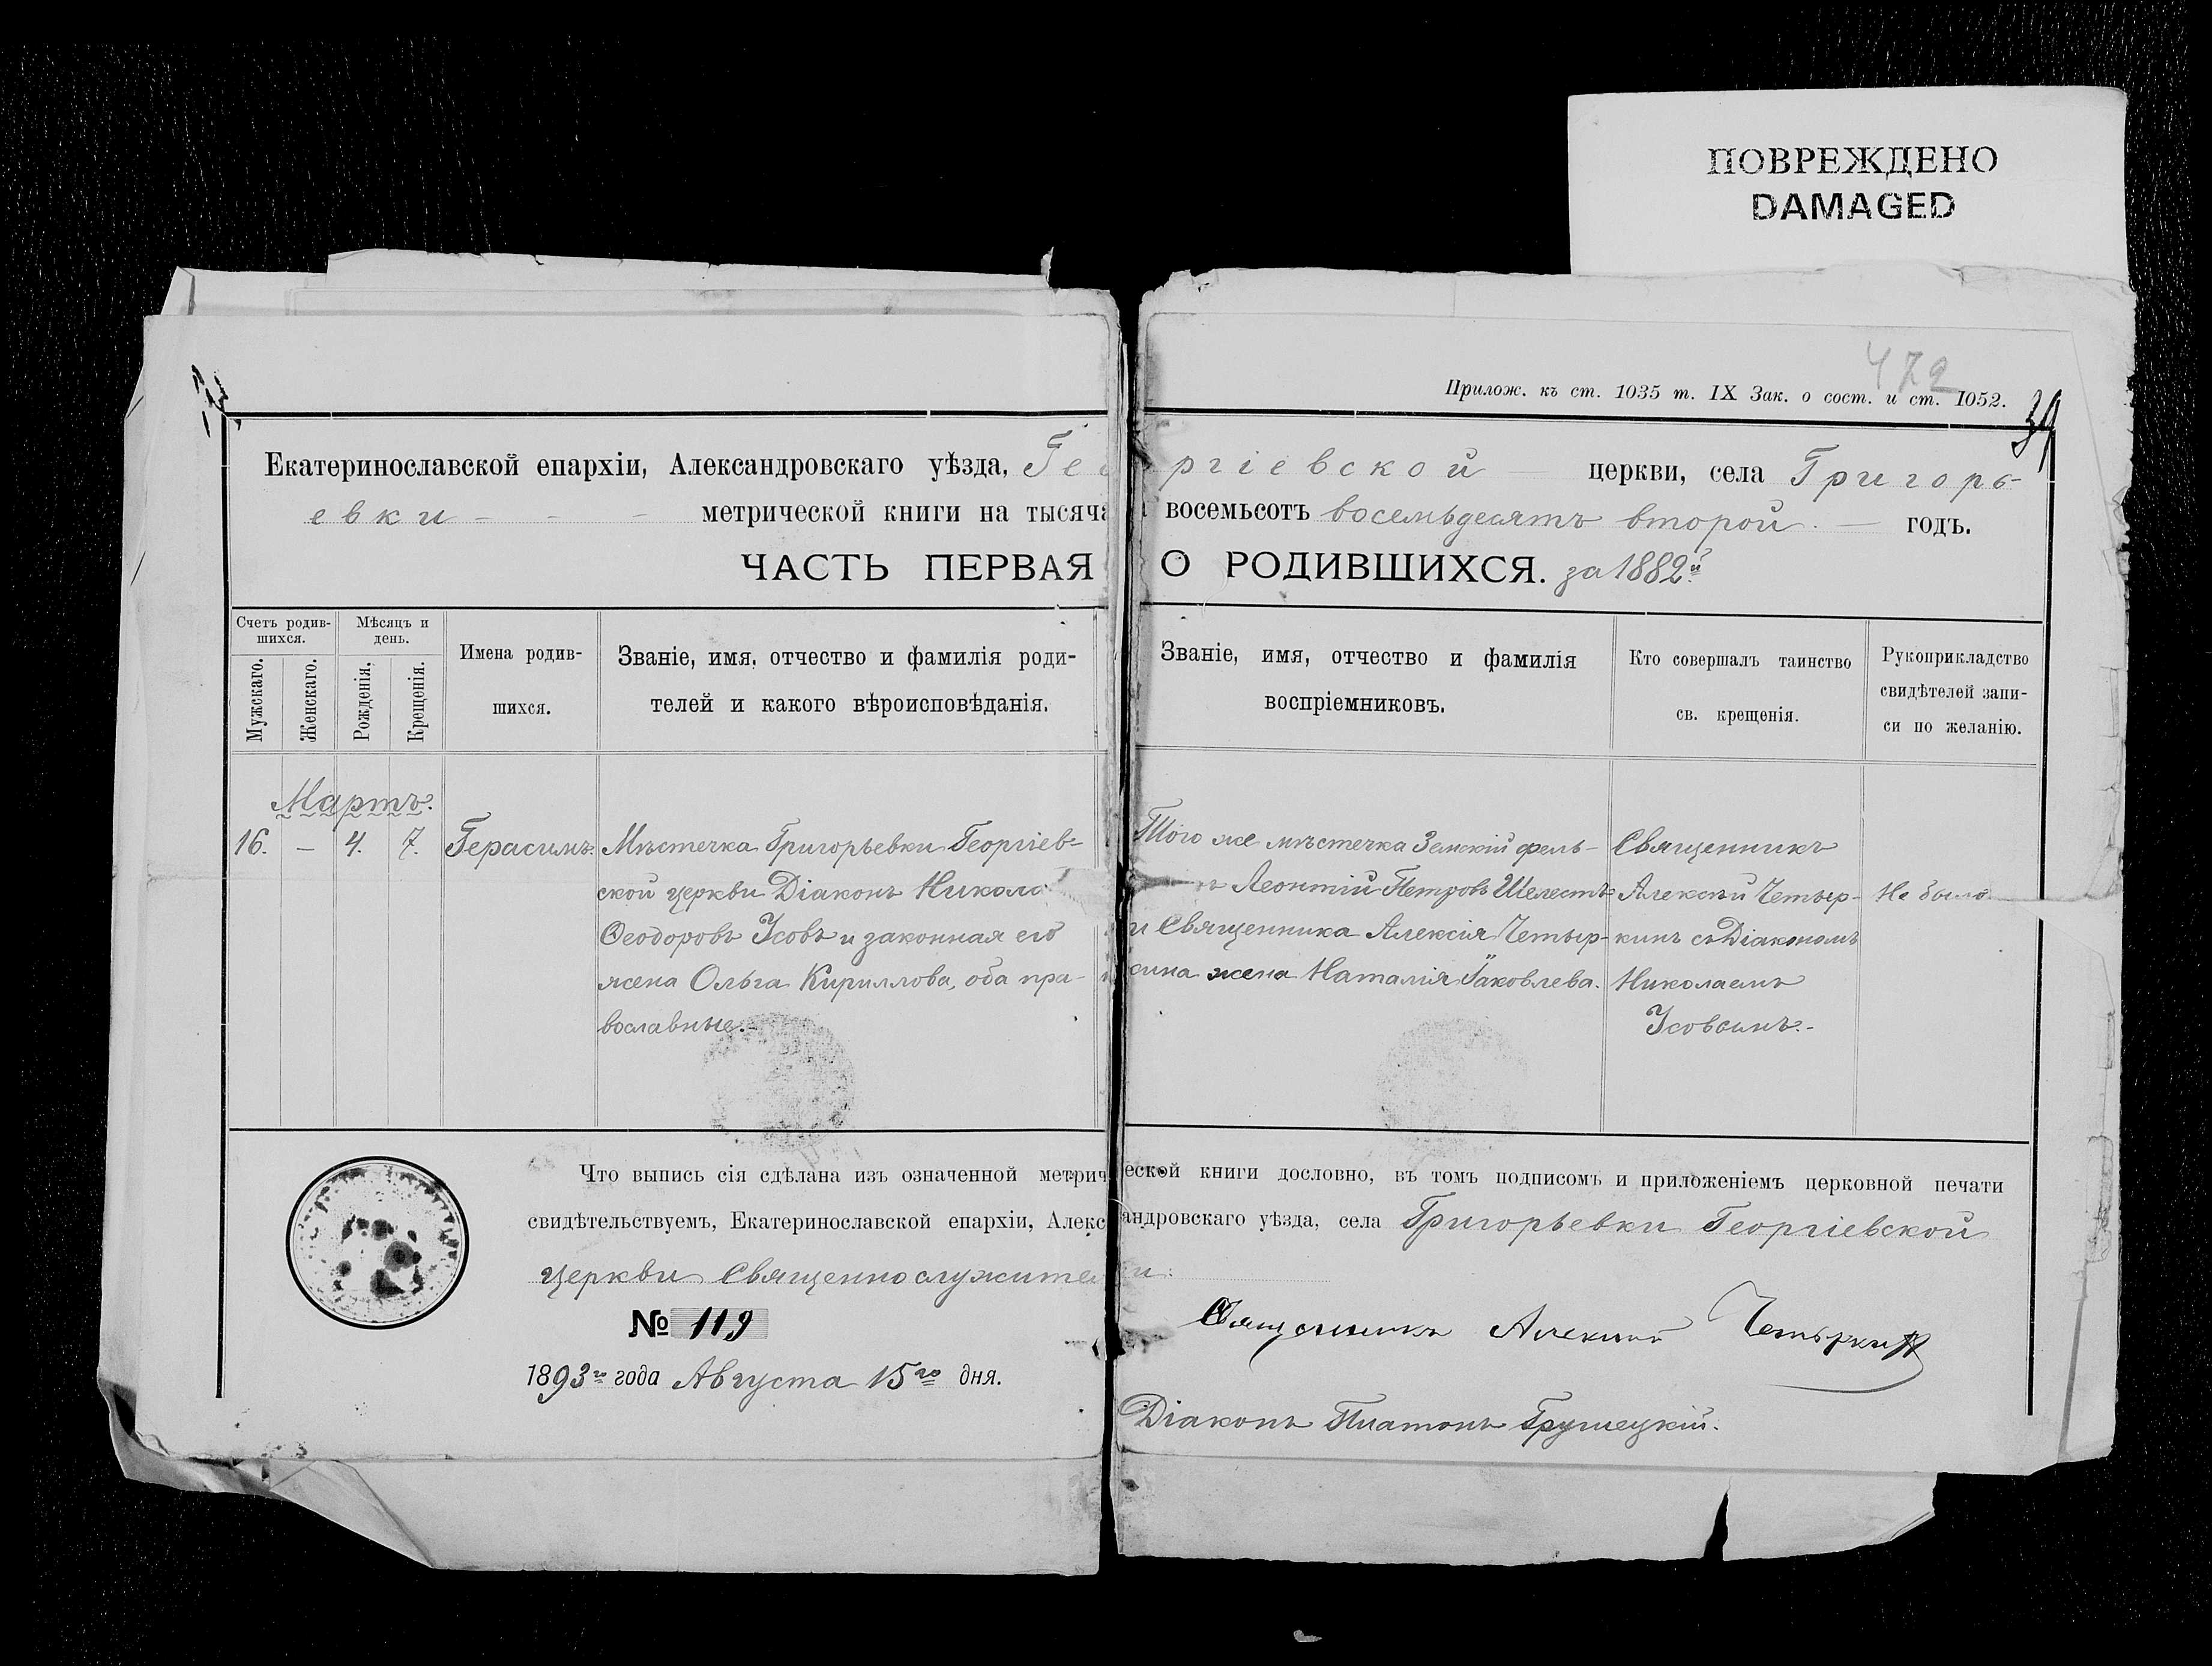 ПОВРЕЖДЕНО
DAMAGED
472
Прилож. къ ст. 1035 т. IX Зак. о сост. и ст. 1052.
39
Екатеринославской епархіи, Александровскаго уѣзда, Георгіевской церкви, села Григорь-
евки - - - метрической книги на тысяча восемьсотъ восемьдесятъ второй. — годъ.
ЧАСТЬ ПЕРВАЯ О РОДИВШИХСЯ. за 1882й
Счетъ родив-
шихся.
Мужскаго.
Женскаго.
Мѣсяцъ и
день.
Рожденія.
Крещенія.
Имена родив-
шихся.
Званіе, имя, отчество и фамилія роди-
телей и какого вѣроисповѣданія.
Званіе, имя, отчество и фамилія
воспріемниковъ.
Кто совершалъ таинство
св. крещенія.
Рукоприкладство
свидѣтелей запи-
си по желанію.
Мартъ.
16. — 4. 7. Герасимъ.
Мѣстечка Григорьевки Георгіев-
ской церкви Діаконъ Никола
Ѳеодоровъ Усовъ и законная его
жена Ольга Кириллова, оба пра-
вославные.-
Того же мѣстечка Земскій фель-
ъ Леонтій Петровъ Шелестъ
и Священника Алексія Четыр-
кина жена Наталія Іаковлева.
Священникъ
Алексѣй Четыр-
кинъ съ Діакономъ
Николаемъ
Усовымъ.-
Не было
Что выпись сія сдѣлана изъ означенной метрической книги дословно, въ томъ подписомъ и приложеніемъ церковной печати
свидѣтельствуемъ, Екатеринославской епархіи, Александровскаго уѣзда, села Григорьевки Георгіевской
церкви Священнослужители.
№ 119
1893го года Августа 15го дня.
Священникъ Алексій Четыркинъ
Діаконъ Платонъ Грушецкій.